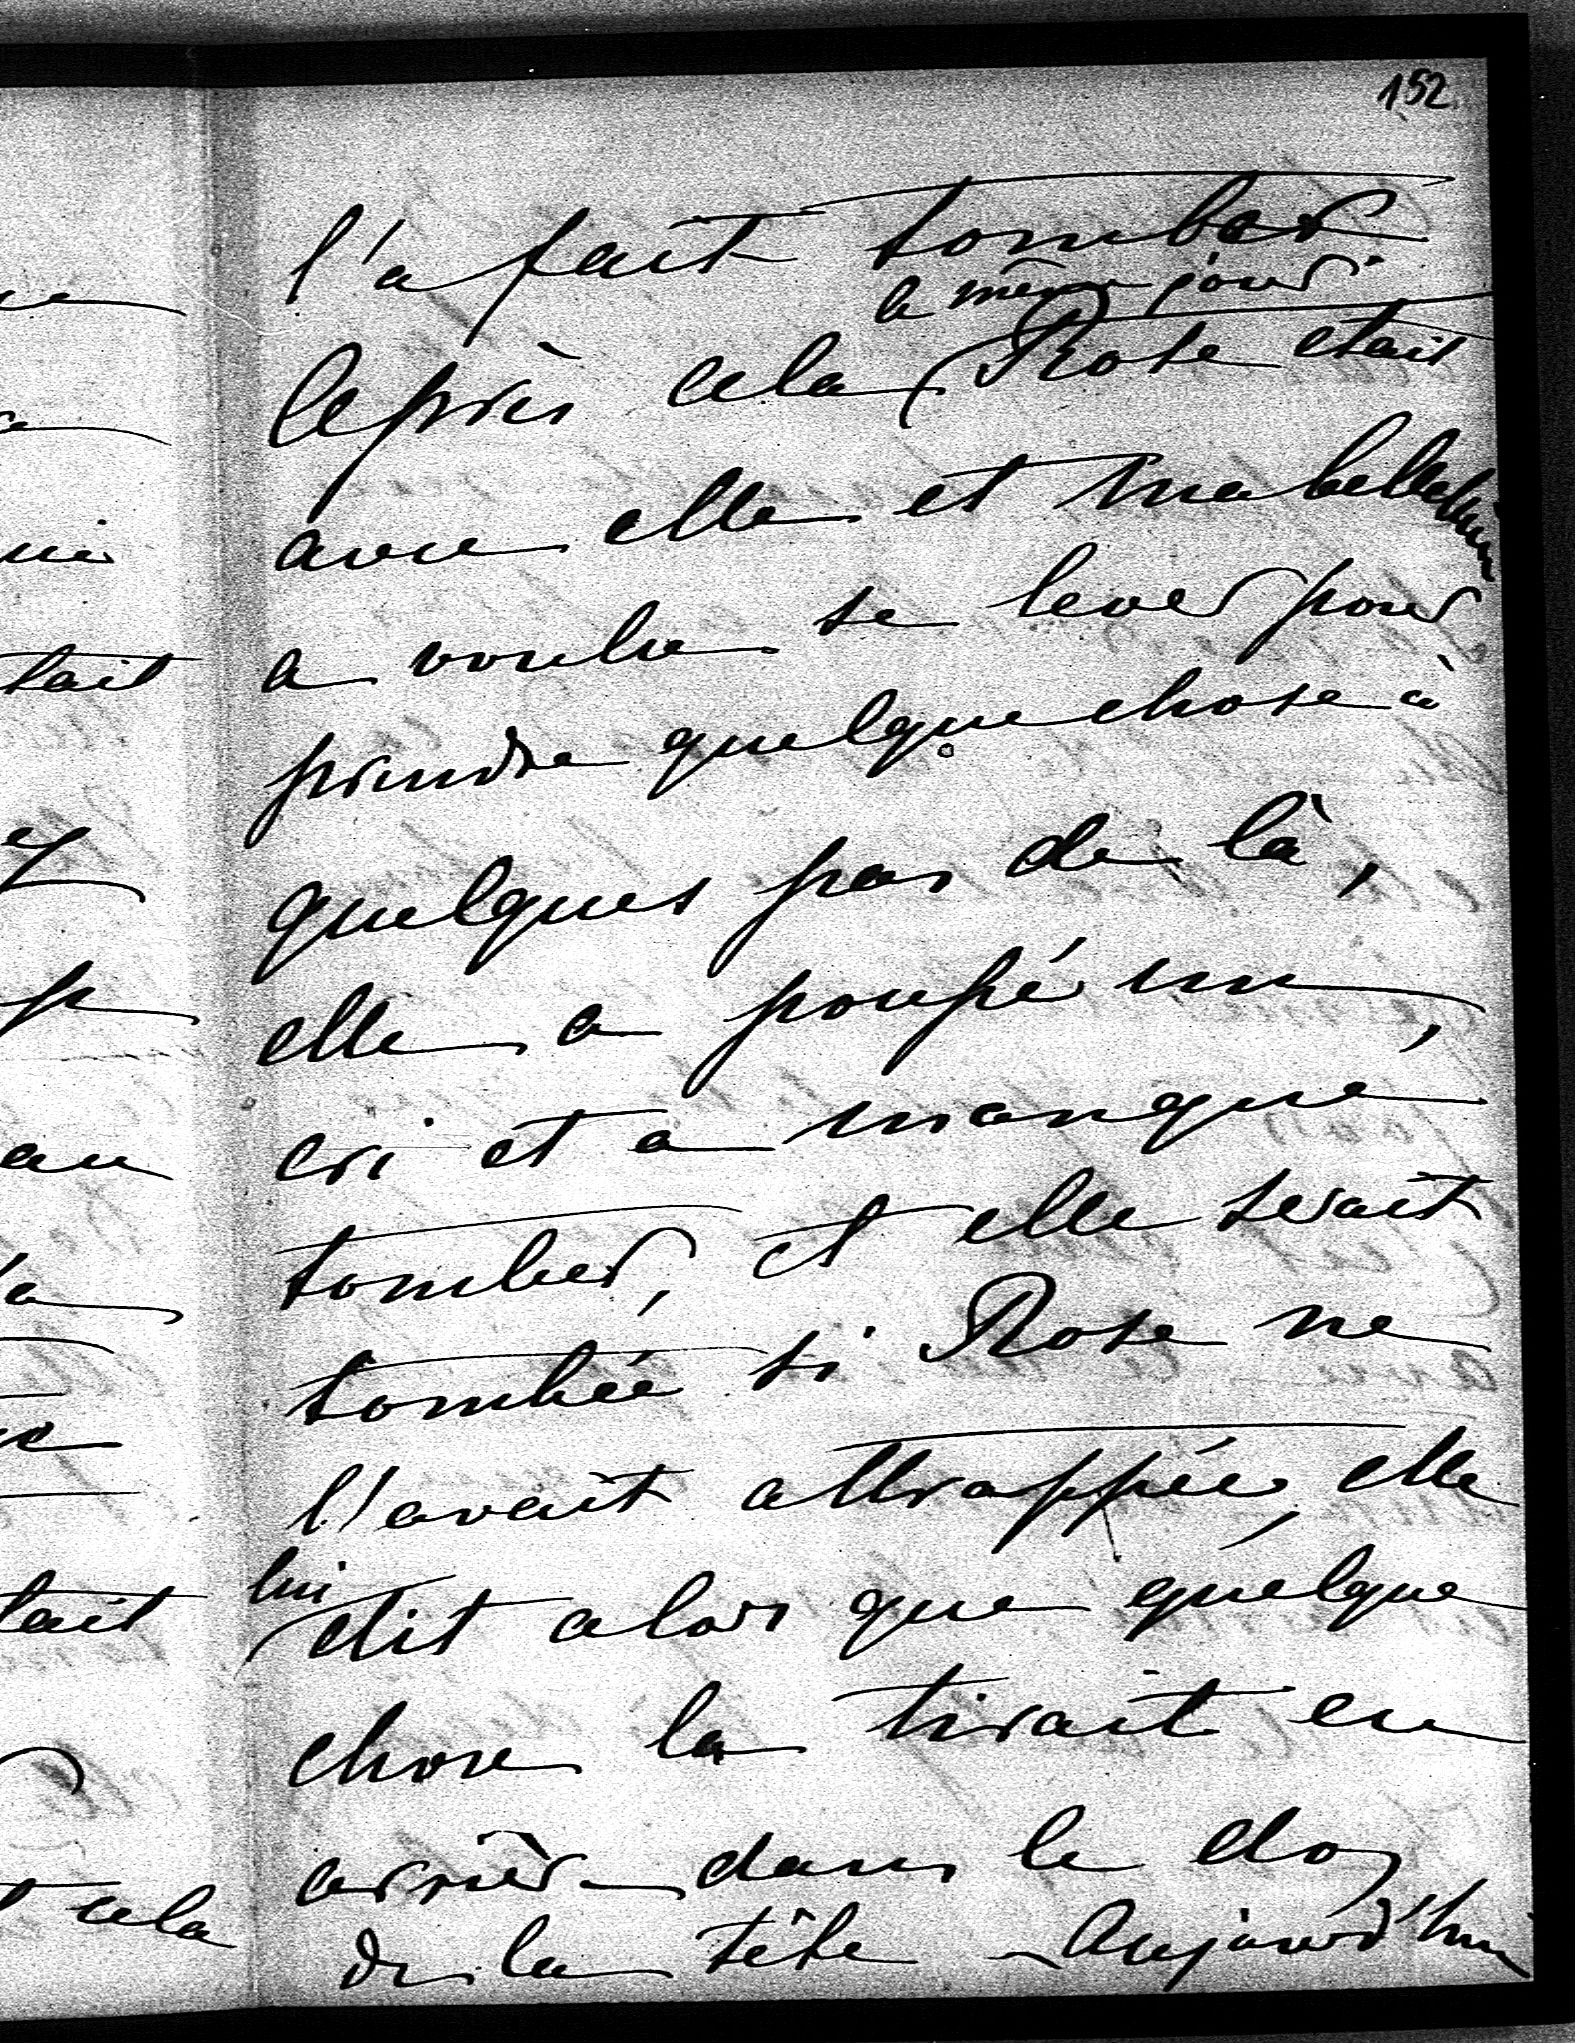 152
l'a fait tomber
le même jour
après cela Rose était
avec elle et ma belle
a voulu se lever pour
prendre quelque chose à
quelques pas de là,
elle a poussé un
cri et a manqué
tomber, et elle serait
tombée si Rose ne
l'avait attrappée, elle
lui
dit alors que quelque
chose la tirait en
arrière dans le dos
de la tête - Aujourd'hui
tait
au
tait
cela